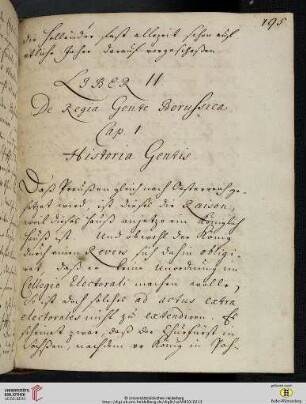 195
die Holländer fast allezeit schon auf
etliche Jahre darauf vorgeschossen.
LIBER II
De Regia Gente Borussica
Cap. 1
Historia Gentis
Daß Preußen gleich nach Oesterreich ge-
setzet wird, ist dieses die Raison,
weil dieses Hauß anjetzo ein Königlich
Hauß ist. Und obwohl der König
durch einen Revers sich dahin obligi-
ret, daß er keine Unordnung im
Collegio Electorali machen wolle,
so ist doch solches ad actus extra
electorales nicht zu extendiren. Es
scheinet zwar, daß der Churfürst in
Sachßen, nachdem er König in Poh-
UNIVERSITÄTS-
BIBLIOTHEK
HEIDELBERG
© Universitätsbibliothek Heidelberg
Baden-Württemberg